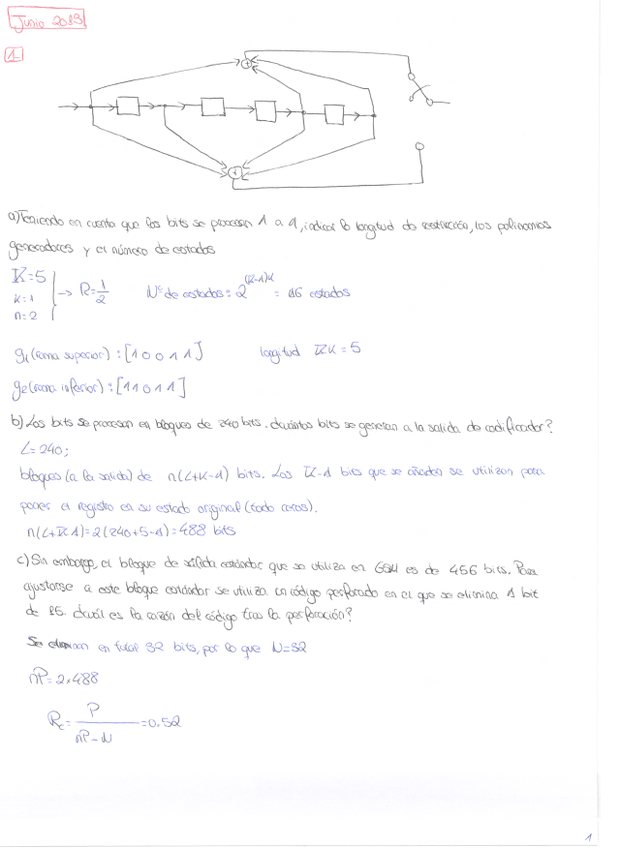 Junio 2018
1
a) Teniendo en cuenta que los bits se procesan 1 a 1, indicar la longitud de restricción, los polinomios
generadores y el número de estados
K=5
k=1
n=2
→ R=1/2
Nº de estados: 2^(K-1)k = 16 estados
g1 (rama superior): [1 0 0 1 1]
longitud Kk=5
g2 (rama inferior): [1 1 0 1 1]
b) Los bits se procesan en bloques de 240 bits. ¿Cuántos bits se generan a la salida de codificador?
L=240;
bloques (a la salida) de n(L+K-1) bits. Los K-1 bits que se añaden se utilizan para
poner el registro en su estado original (todo ceros).
n(L+K-1)=2(240+5-1)=488 bits
c) Sin embargo, el bloque de salida estándar que se utiliza en GSM es de 456 bits. Para
ajustarse a este bloque estándar se utiliza un código perforado en el que se elimina 1 bit
de 15. ¿Cuál es la razón del código tras la perforación?
Se eliminan en total 32 bits, por lo que N=32
nP=2·488
Rc= P/(nP-N) =0.52
1